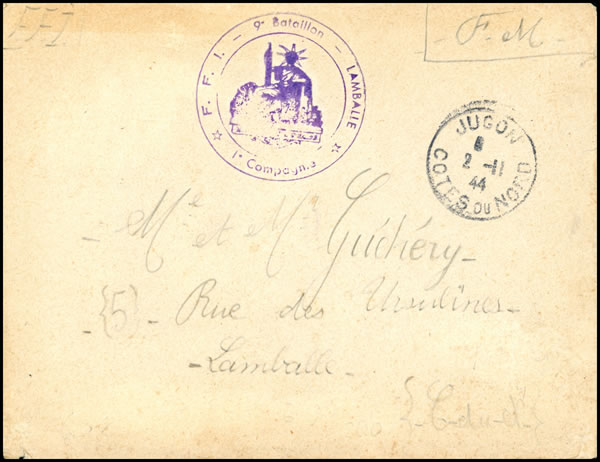 FFI
F. F. I. - 9e Bataillon - LAMBALLE
1e Compagnie
F. M.
JUGON
2 -11
44
COTES DU NORD
- Me et Mr Guéhéry -
- {5} - Rue des Ursulines -
- Lamballe -
{- C-du-N -}